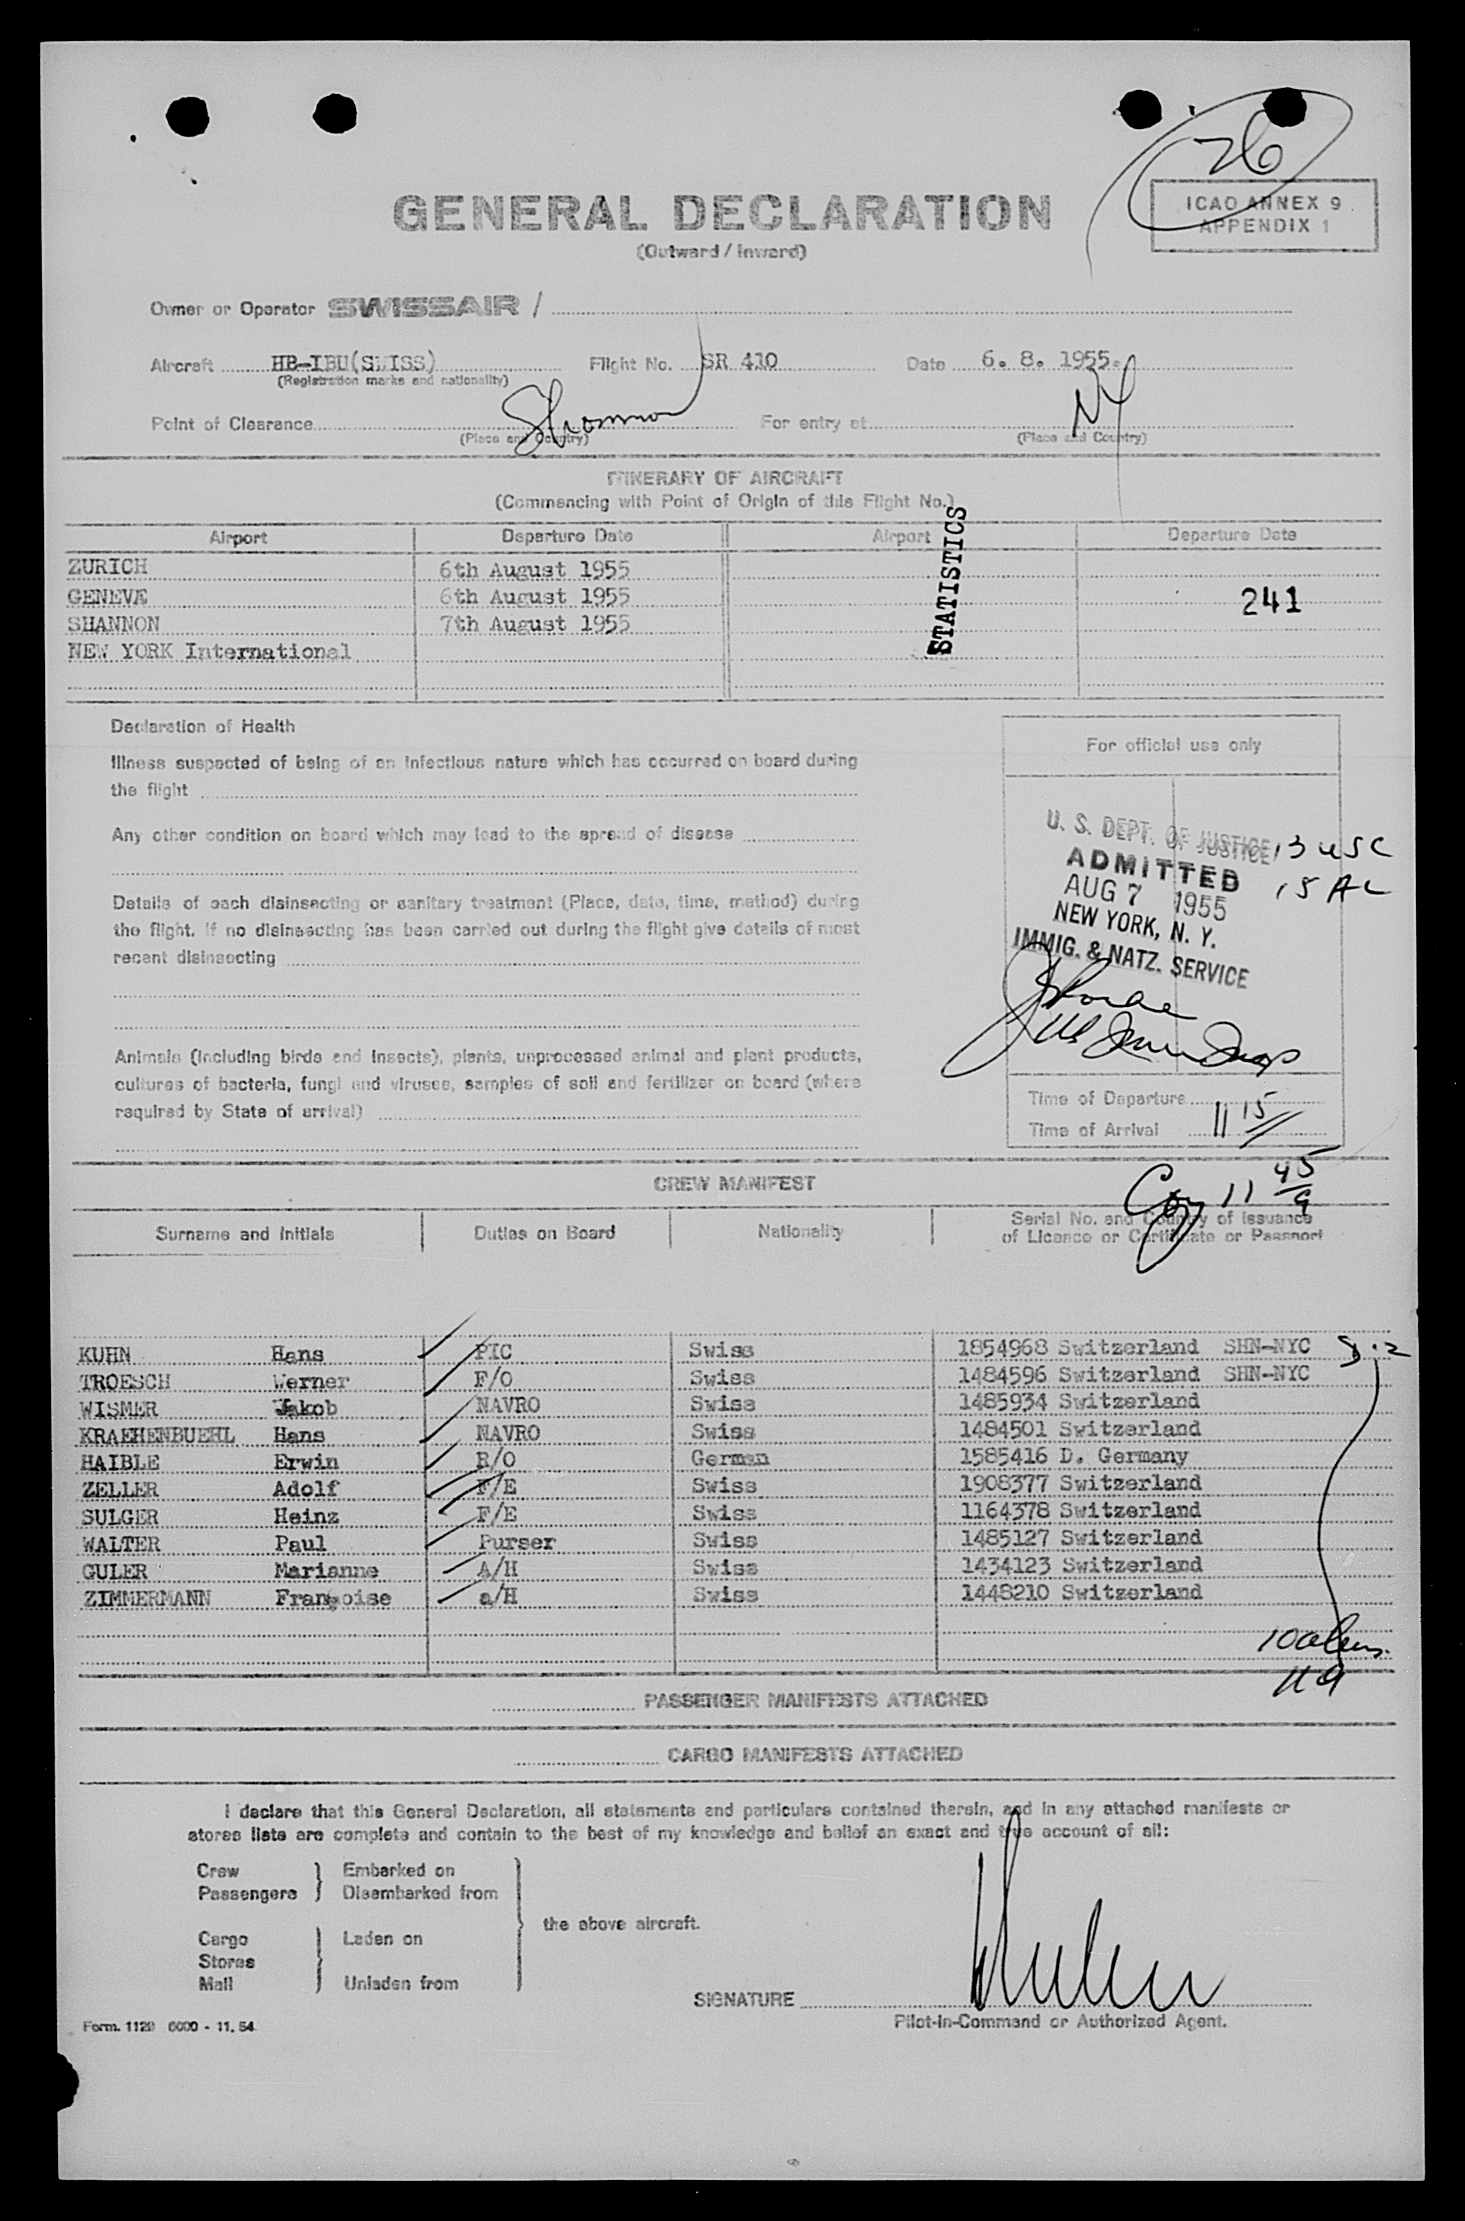 26
GENERAL DECLARATION
(Outward / Inward)
ICAO ANNEX 9
APPENDIX 1
Owner or Operator SWISSAIR /
Aircraft HB-IBU(SWISS) Flight No. SR 410 Date 6. 8. 1955.
(Registration marks and nationality)
Point of Clearance Shannon For entry at NY
(Place and Country) (Place and Country)
ITINERARY OF AIRCRAFT
(Commencing with Point of Origin of this Flight No.)
Airport Departure Date Airport Departure Date
ZURICH 6th August 1955
GENEVA 6th August 1955
SHANNON 7th August 1955
NEW YORK International
STATISTICS
241
Declaration of Health
Illness suspected of being of an infectious nature which has occurred on board during
the flight
Any other condition on board which may lead to the spread of disease
Details of each disinsecting or sanitary treatment (Place, date, time, method) during
the flight. If no disinsecting has been carried out during the flight give details of most
recent disinsecting
Animals (including birds and insects), plants, unprocessed animal and plant products,
cultures of bacteria, fungi and viruses, samples of soil and fertilizer on board (where
required by State of arrival)
For official use only
U. S. DEPT. OF JUSTICE
ADMITTED
AUG 7 1955
NEW YORK, N. Y.
IMMIG. & NATZ. SERVICE
13 USC
15 AL
Time of Departure
Time of Arrival 11 15
11 45
CREW MANIFEST
Surname and Initials Duties on Board Nationality Serial No. and Country of Issuance
of Licence or Certificate or Passport
KUHN Hans PIC Swiss 1854968 Switzerland SHN-NYC
TROESCH Werner F/O Swiss 1484596 Switzerland SHN-NYC
WISMER Jakob NAVRO Swiss 1485934 Switzerland
KRAEHENBUEHL Hans NAVRO Swiss 1484501 Switzerland
HAIBLE Erwin R/O German 1585416 D. Germany
ZELLER Adolf F/E Swiss 1908377 Switzerland
SULGER Heinz F/E Swiss 1164378 Switzerland
WALTER Paul Purser Swiss 1485127 Switzerland
GULER Marianne A/H Swiss 1434123 Switzerland
ZIMMERMANN Françoise a/H Swiss 1448210 Switzerland
PASSENGER MANIFESTS ATTACHED
CARGO MANIFESTS ATTACHED
I declare that this General Declaration, all statements and particulars contained therein, and in any attached manifests or
stores lists are complete and contain to the best of my knowledge and belief an exact and true account of all:
Crew Embarked on
Passengers Disembarked from
the above aircraft.
Cargo Laden on
Stores
Mail Unladen from
SIGNATURE
Pilot-in-Command or Authorized Agent.
Form. 1129 6000 - 11. 54